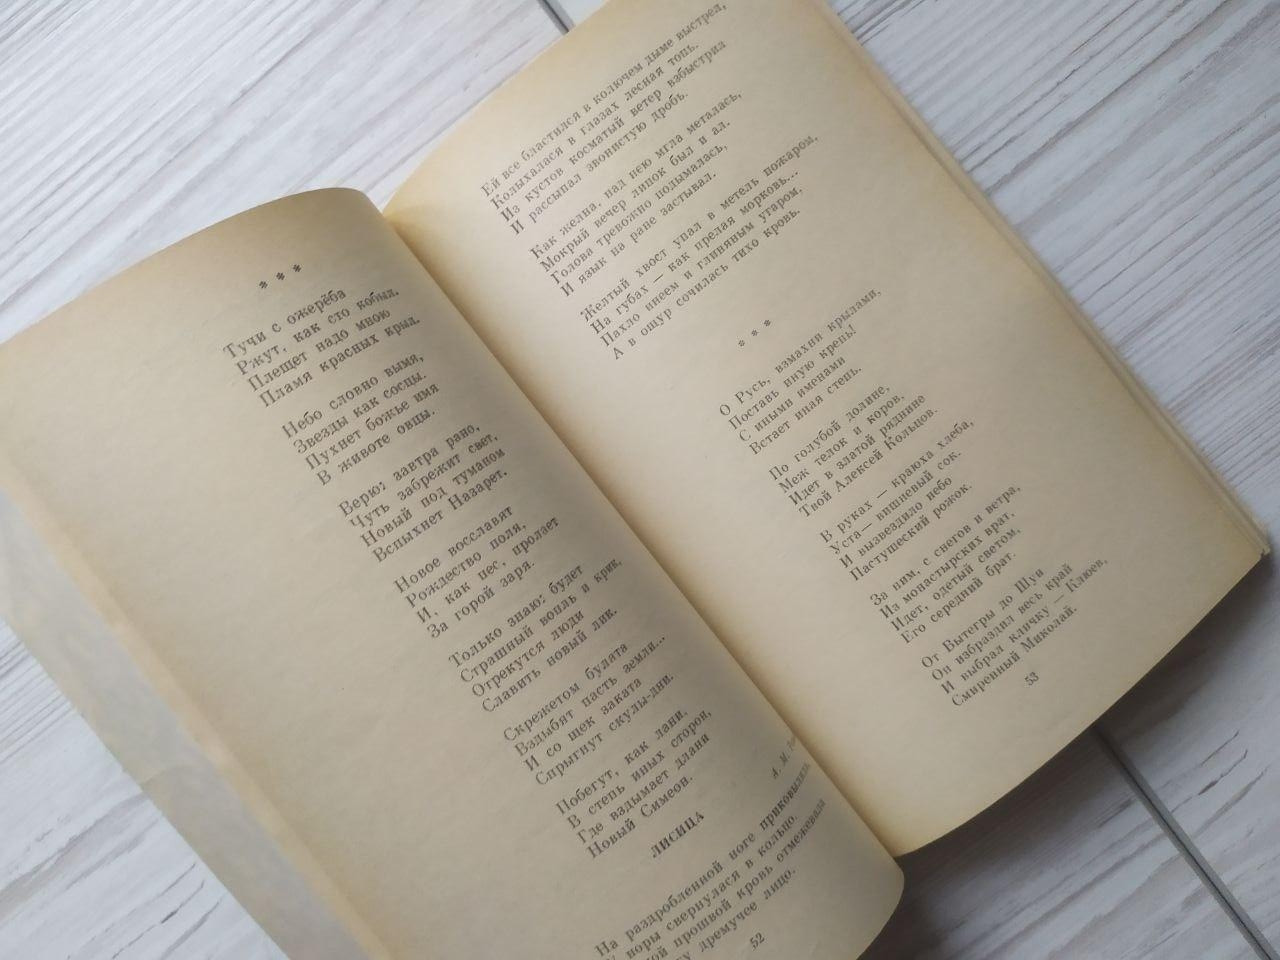 * * *
Тучи с ожерёба
Ржут, как сто кобыл,
Плещет надо мною
Пламя красных крыл.
Небо словно вымя,
Звезды как сосцы.
Пухнет божье имя
В животе овцы.
Верю: завтра рано,
Чуть забрежит свет,
Новый под туманом
Вспыхнет Назарет.
Новое восславят
Рождество поля,
И, как пес, пролает
За горой заря.
Только знаю: будет
Страшный вопль и крик,
Отрекутся люди
Славить новый лик.
Скрежетом булата
Вздыбят пасть земли...
И со щек заката
Спрыгнут скулы-дни.
Побегут, как лани,
В степь иных сторон,
Где вздымает длани
Новый Симеон.
ЛИСИЦА
А. М.
На раздробленной ноге приковыляла,
норы свернулася в кольцо.
прошвой кровь отмежевала
дремучее лицо.
52
Ей все бластился в колючем дыме выстрел,
Колыхалася в глазах лесная топь.
Из кустов косматый ветер взбыстрил
И рассыпал звонистую дробь.
Как желна, над нею мгла металась,
Мокрый вечер липок был и ал.
Голова тревожно подымалась,
И язык на ране застывал.
Желтый хвост упал в метель пожаром,
На губах — как прелая морковь...
Пахло инеем и глиняным угаром,
А в ощур сочилась тихо кровь.
* * *
О Русь, взмахни крылами,
Поставь иную крепь!
С иными именами
Встает иная степь.
По голубой долине,
Меж телок и коров,
Идет в златой ряднине
Твой Алексей Кольцов.
В руках — краюха хлеба,
Уста — вишневый сок.
И вызвездило небо
Пастушеский рожок.
За ним, с снегов и ветра,
Из монастырских врат,
Идет, одетый светом,
Его середний брат.
От Вытегры до Шуи
Он избраздил весь край
И выбрал кличку — Клюев,
Смиренный Миколай.
53